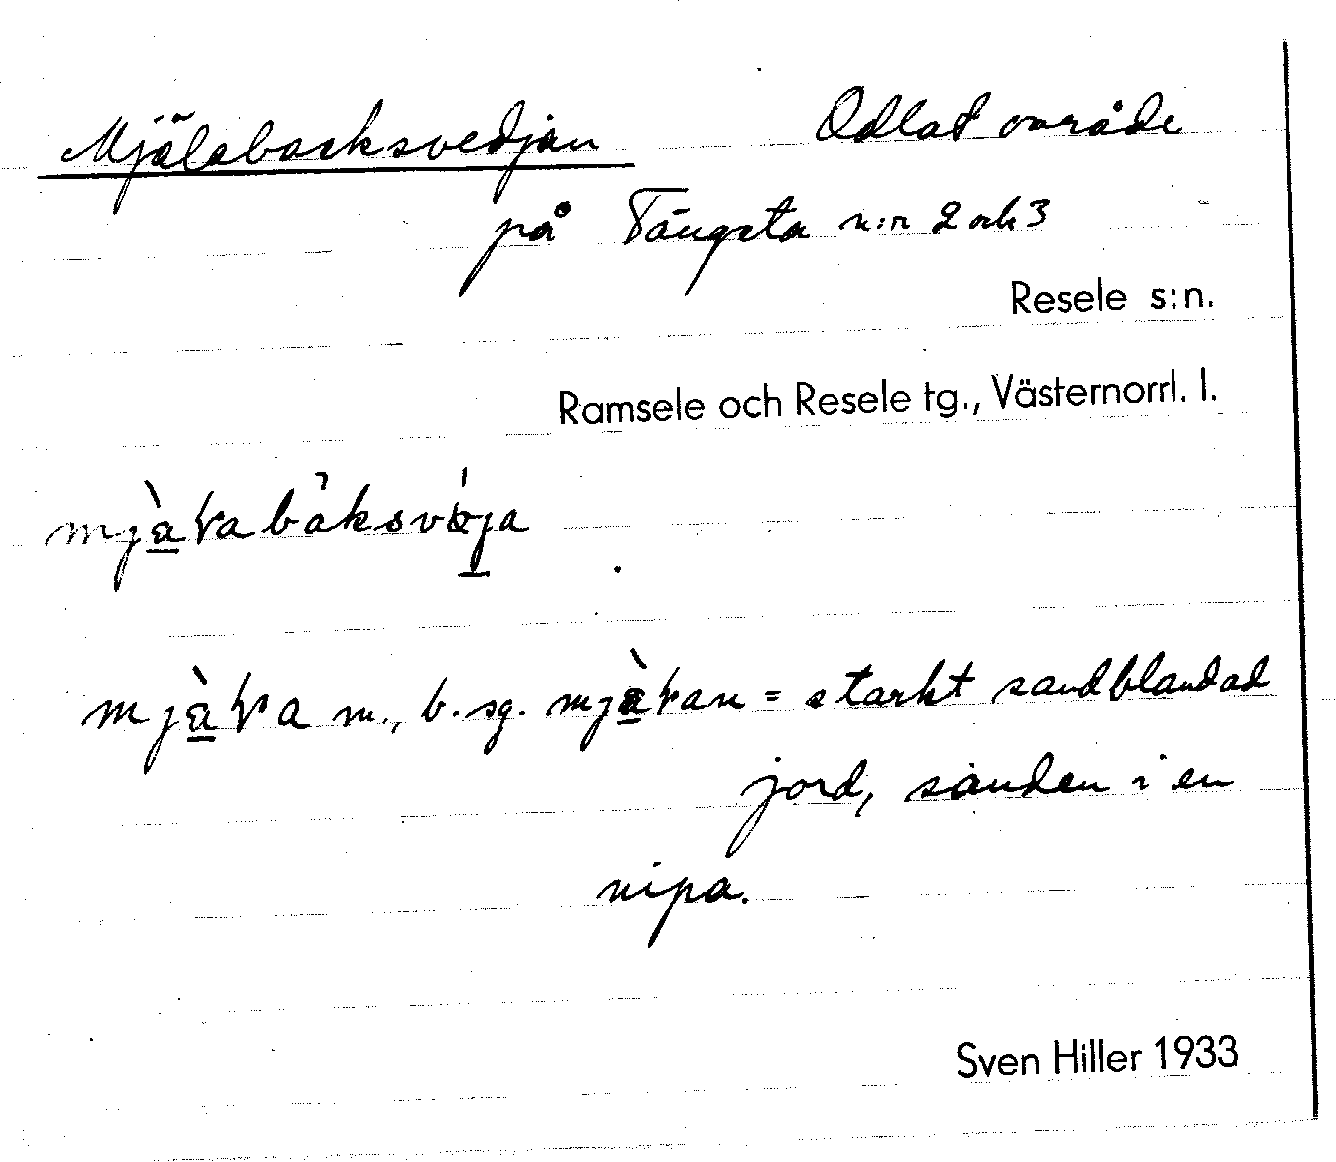 Mjälabacksvedjan Odlat område
på Tängsta n:r 2 och 3
Resele s:n.
Ramsele och Resele tg., Västernorrl. l.
m., b. sg. = starkt sandblandad
jord, sanden i en
nipa.
Sven Hiller 1933